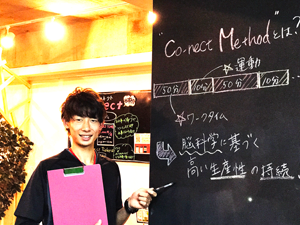 "Co-nect Method"とは?
☆運動
50分 10分 50分 10分
☆ワークタイム
脳科学に基づく
高い生産性の持続